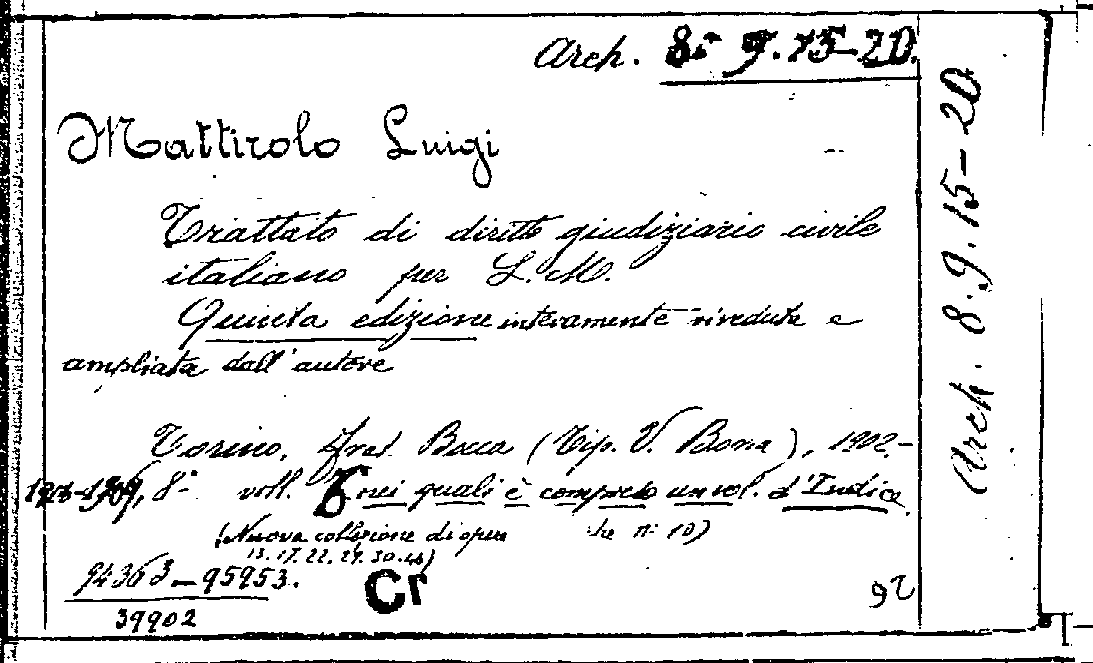 Arch. 8º 9.15-20.
Mattirolo Luigi
Trattato di diritto giudiziario civile
italiano per L. M.
Quinta edizione interamente riveduta e
ampliata dall'autore
Torino, frat. Bocca (Tip. V. Bona), 1902-
8º voll. 6 nei quali è compreso un vol. d'Indice
(Nuova collezione di opere nº 10)
13. 17. 22. 24. 30.
94363-95953.
39902
Cr
92
Arch. 8.9.15-20